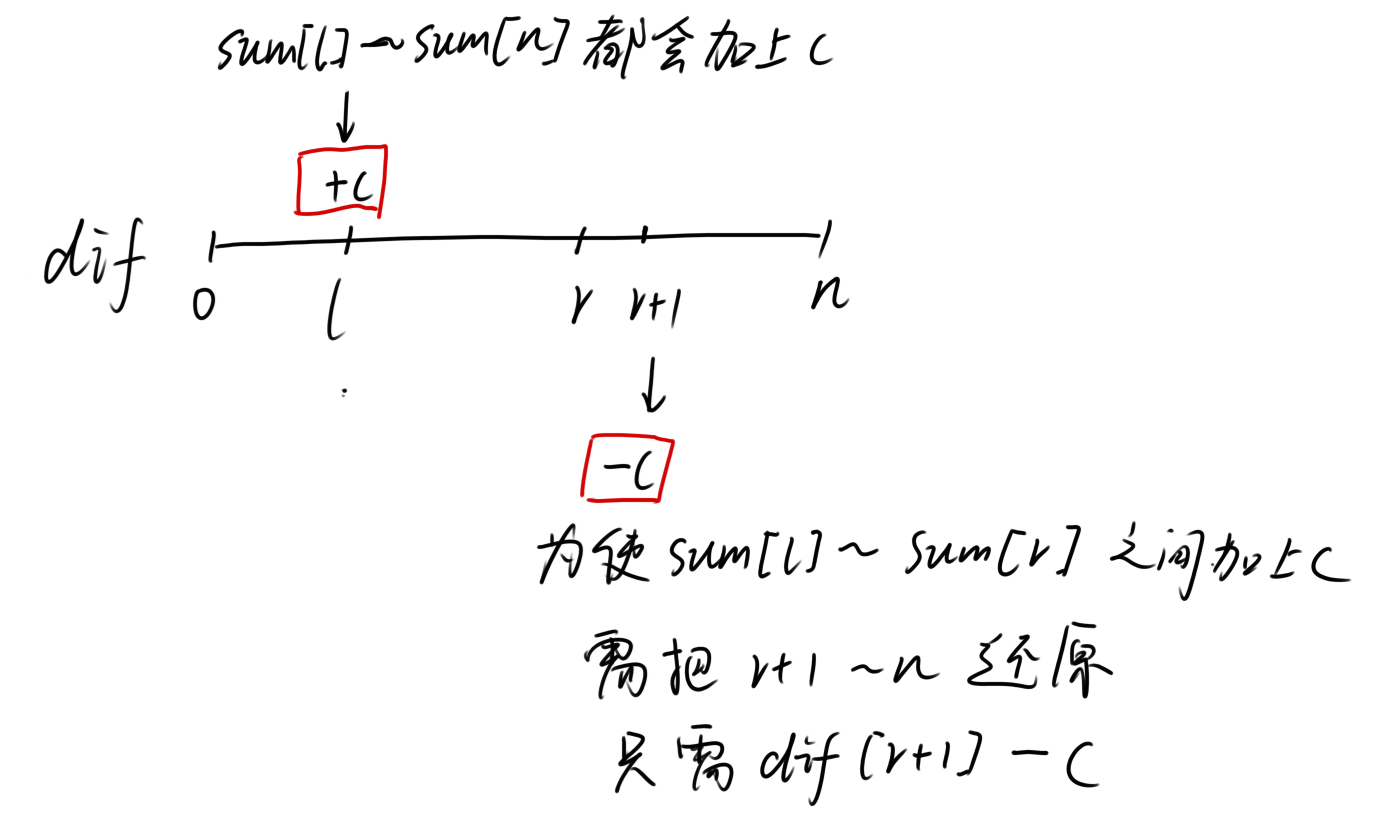 sum[l]~sum[n]都会加上C
+C
dif
0 l r r+1 n
-C
为使sum[l]~sum[r]之间加上C
需把r+1~n还原
只需dif[r+1]-C